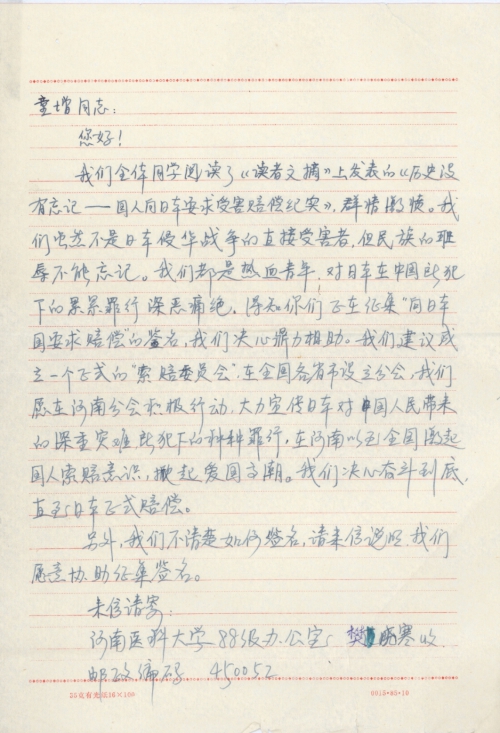 童增同志：
您好！
我们全体同学阅读了《读者文摘》上发表的《历史没
有忘记——国人向日本要求受害赔偿纪实》，群情激愤。我
们虽然不是日本侵华战争的直接受害者，但民族的耻
辱不能忘记。我们都是热血青年，对日本在中国所犯
下的累累罪行深恶痛绝，得知你们正在征集“向日本
国要求赔偿”的签名，我们决心鼎力相助。我们建议成
立一个正式的“索赔委员会”，在全国各省市设立分会，我们
愿在河南分会积极行动，大力宣传日本对中国人民带来
的深重灾难，所犯下的种种罪行，在河南以至全国激起
国人索赔意识，掀起爱国高潮。我们决心奋斗到底，
直至日本正式赔偿。
另外，我们不清楚如何签名，请来信说明，我们
愿意协助征集签名。
来信请寄：
河南医科大学88级办公室 樊 寒收
邮政编码 450052